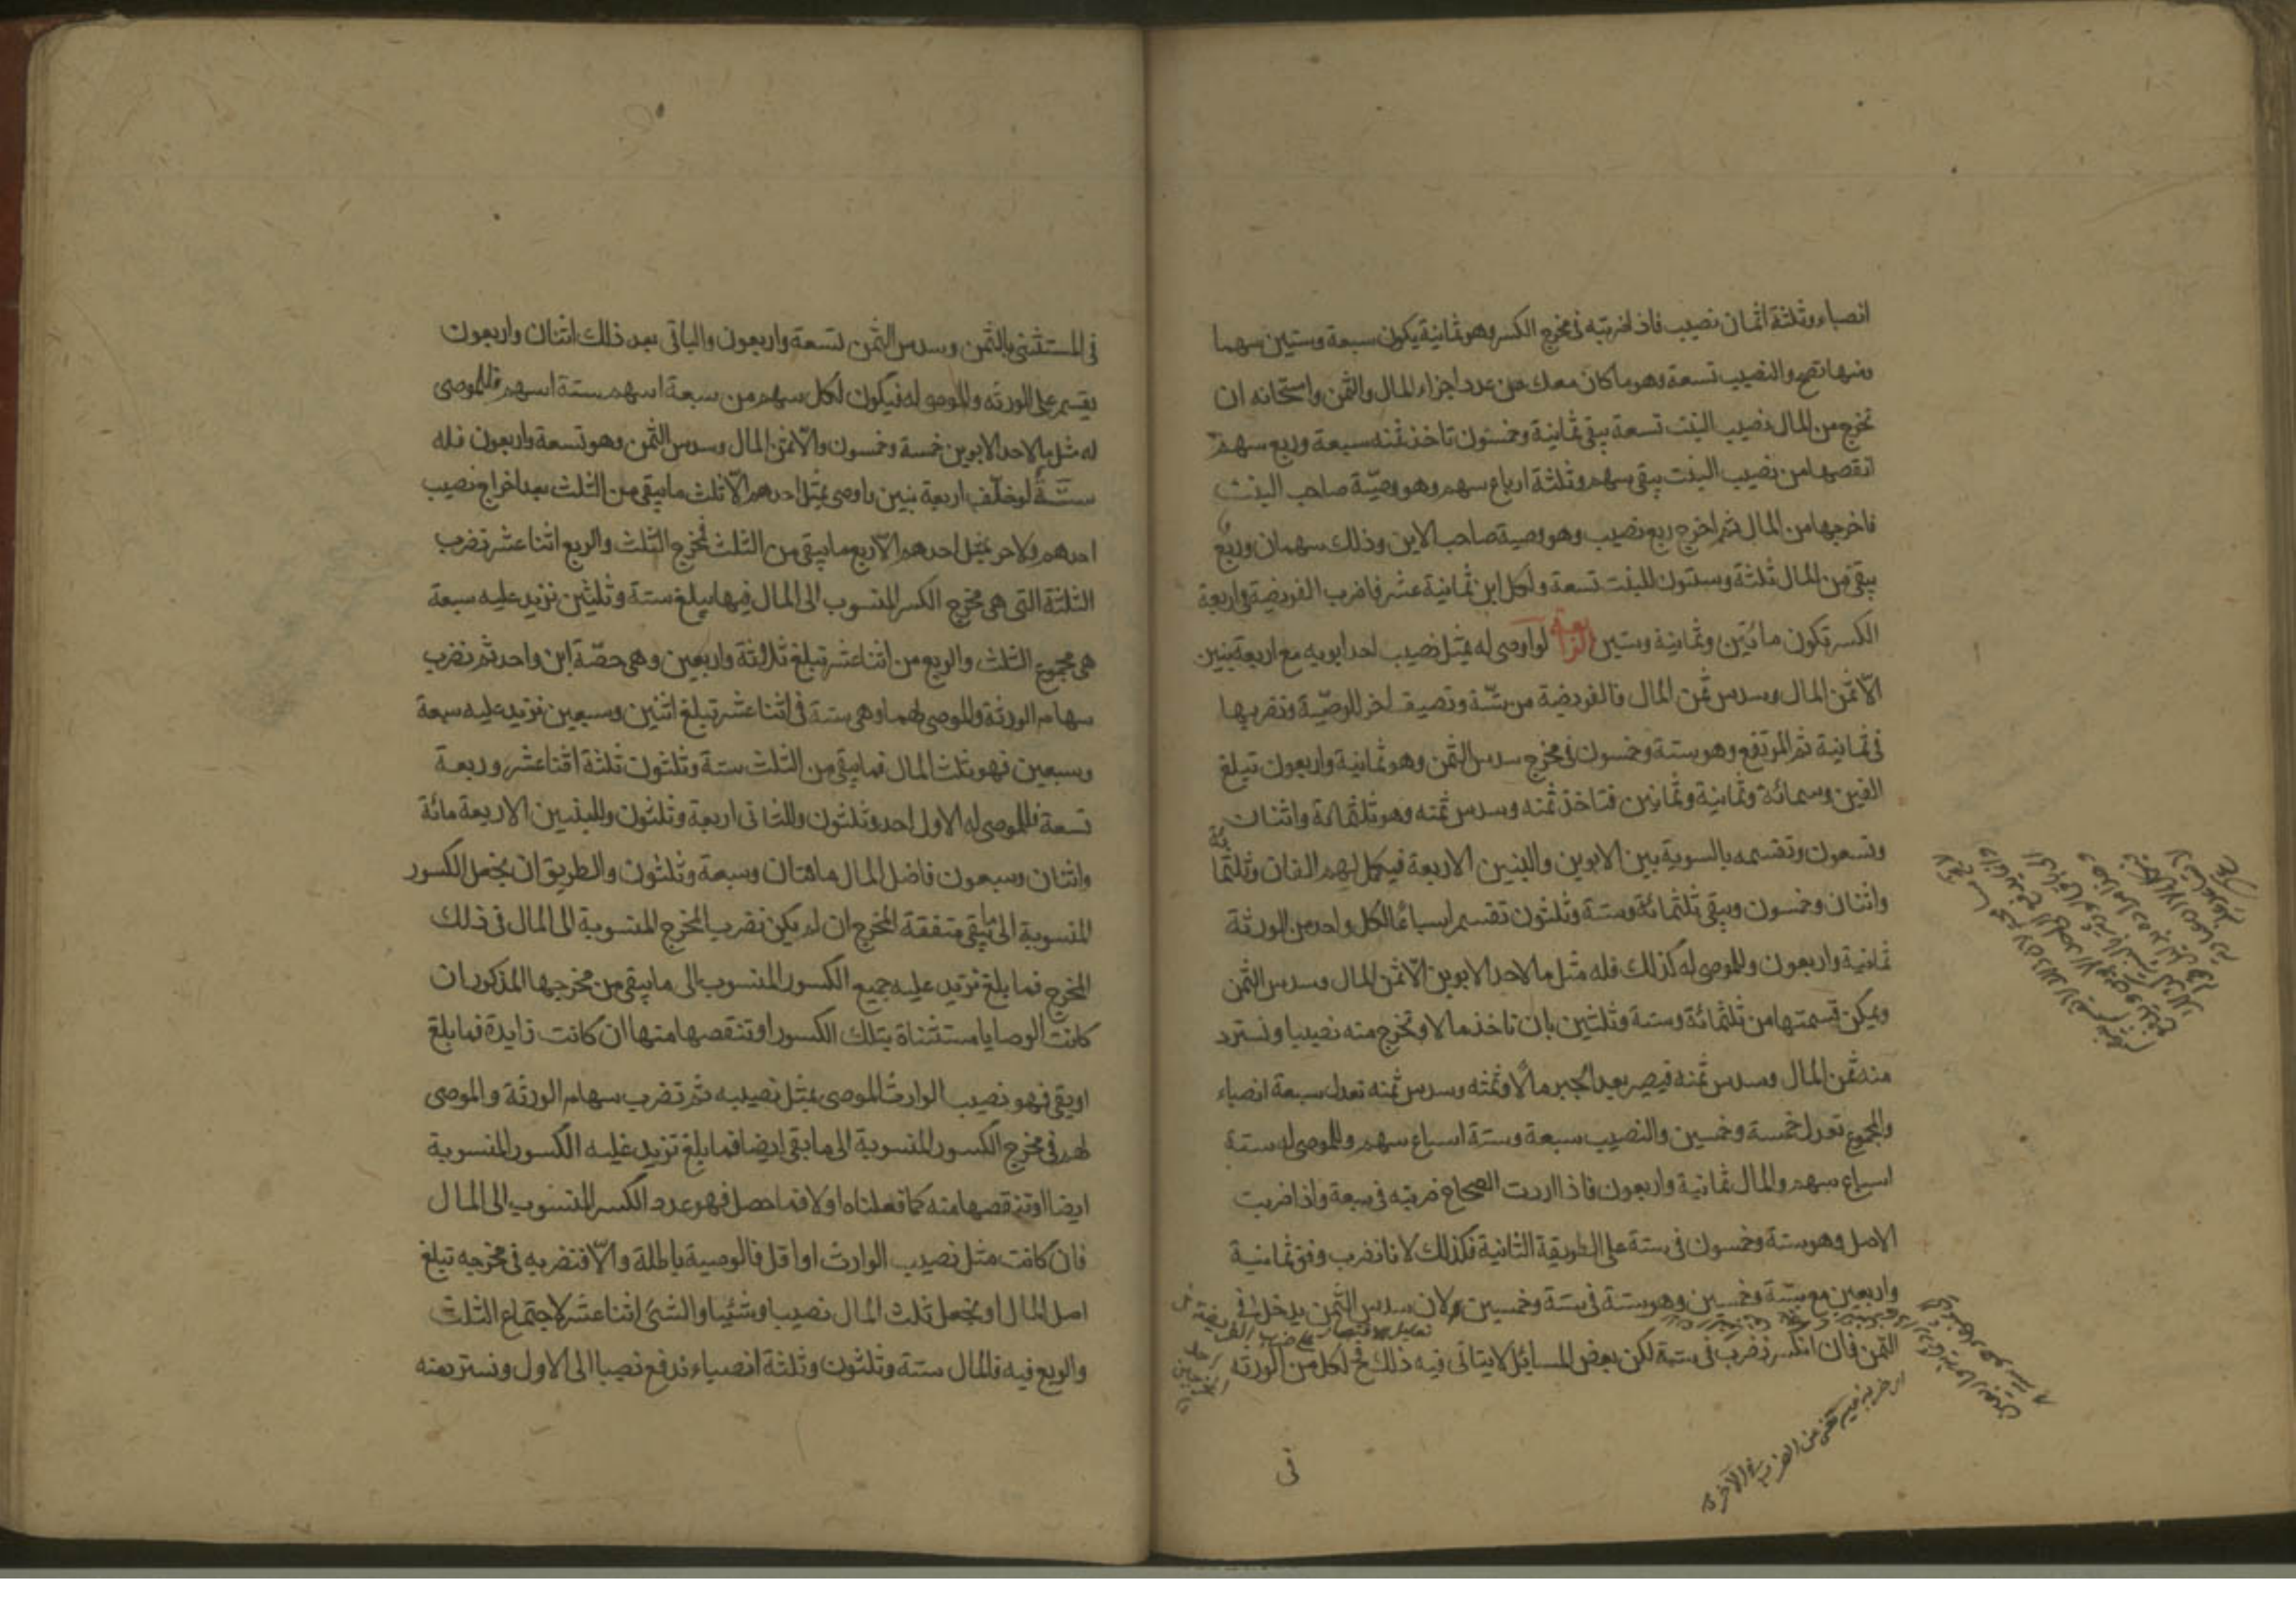 انصباء وثلثة اثمان نصيب فاذا ضربته فى مخرج الكسر وهو ثمانية يكون سبعة وستين سهما
ومنها تصح والنصيب تسعة وهو ما كان معك من عدد اجزاء المال والثمن وامتحانه ان
تخرج من المال نصيب البنت تسعة يبقى ثمانية وخمسون تاخذ ثمنه سبعة وربع سهم
انقصها من نصيب البنت يبقى سهم وثلثة ارباع سهم وهو وصيّة صاحب البنت
فاخرجها من المال ثم اخرج ربع نصيب وهو وصية صاحب الابن وذلك سهمان وربع
يبقى من المال ثلثة وستون للبنت تسعة ولكل ابن ثمانية عشر فاضرب الفريضة فى اربعة
الكسر تكون مائتين وثمانية وستين لو اوصى له بمثل نصيب احد ابويه مع اربعة بنين
الّا ثمن المال وسدس ثمن المال فالفريضة من ستّة وتضيف اخر للوصيّة وتضربها
فى ثمانية ثم المرتفع وهو ستة وخمسون فى مخرج سدس الثمن وهو ثمانية واربعون تبلغ
الفين وستمائة وثمانية وثمانين فتاخذ ثمنه وسدس ثمنه وهو ثلثمائة واثنان
وتسعون وتقسمه بالسوية بين الابوين والبنين الاربعة فيكمل لهم الفان وثلثمائة
واثنان وخمسون ويبقى ثلثمائة وستة وثلثون تقسم اسباعًا لكل واحد من الورثة
ثمانية واربعون وللموصى له كذلك فله مثل ما لاحد الابوين الّا ثمن المال وسدس الثمن
ويمكن قسمتها من ثلثمائة وستة وثلثين بان تاخذ مالا وتخرج منه نصيبا وتسترد
منه ثمن المال وسدس ثمنه فيصير بعد الجبر مالًا وثمنه وسدس ثمنه تعدل سبعة انصباء
والمجموع تعدل خمسة وخمسين والنصيب سبعة وستة اسباع سهم وللموصى له ستة
اسباع سهم والمال ثمانية واربعون فاذا اردت الصحاح ضربته فى سبعة واذا ضربت
الاصل وهو ستة وخمسون فى ستة على الطريقة الثانية فكذلك لانا نضرب وفق ثمانية
واربعين مع ستّة وخمسين وهو ستة فى ستة وخمسين ولان سدس الثمن يدخل فى
الثمن فان انكسر نضرب فى ستة لكن بعض المسائل لا يتاتى فيه ذلك فح لكل من الورثة
فى
فى المستثنى بالثمن وسدس الثمن تسعة واربعون والباقى بعد ذلك اثنان واربعون
يقسم على الورثه والموصى له فيكون لكل سهم من سبعة اسهم ستة اسهم فللموصى
له مثل ما لاحد الابوين خمسة وخمسون والّا ثمن المال وسدس الثمن وهو تسعة واربعون فله
ستّة لو خلّف اربعة بنين واوصى بمثل احدهم الّا ثلث ما يبقى من الثلث بعد اخراج نصيب
احدهم ولاخر بمثل احدهم الّا ربع ما يبقى من الثلث فمخرج الثلث والربع اثنا عشر تضرب
الثلثة التى هى مخرج الكسر المنسوب الى المال فيها يبلغ ستة وثلثين تزيد عليه سبعة
هى مجموع الثلث والربع من اثنا عشر تبلغ ثلاثة واربعين وهى حصّة ابن واحد ثم تضرب
سهام الورثة والموصى لهما وهى ستة فى اثنا عشر تبلغ اثنين وسبعين تزيد عليه سبعة
وسبعين فهو ثلث المال فما يبقى من الثلث ستة وثلثون ثلثة اثنا عشر وربعة
تسعة فللموصى له الاول احد وثلثون وللثانى اربعة وثلثون وللبنين الاربعة مائة
واثنان وسبعون فاضل المال مائتان وسبعة وثلثون والطريق ان يجعل الكسور
المنسوبة الى ما يبقى متفقة المخرج ان لم يكن نضرب المخرج المنسوبة الى المال فى ذلك
المخرج فما بلغ تزيد عليه جميع الكسور المنسوب الى ما يبقى من مخرجها المذكور ان
كانت الوصايا مستثناة بتلك الكسور او تنقصها منها ان كانت زايدة فما بلغ
او بقى فهو نصيب الوارث الموصى بمثل نصيبه ثم تضرب سهام الورثة والموصى
لهم فى مخرج الكسور المنسوبة الى ما بقى ايضا فما بلغ تزيد عليه الكسور المنسوبة
ايضا او تنقصها منه كما فعلناه اولا فما حصل فهو عدد الكسر المنسوب الى المال
فان كانت مثل نصيب الوارث او اقل فالوصية باطلة والّا فنضربه فى مخرجه تبلغ
اصل المال او يجعل ثلث المال نصيبا وشيئا والشئ اثنا عشر لاجتماع الثلث
والربع فيه فالمال ستة وثلثون وثلثة انصباء ندفع نصيبا الى الاول ونسترد منه